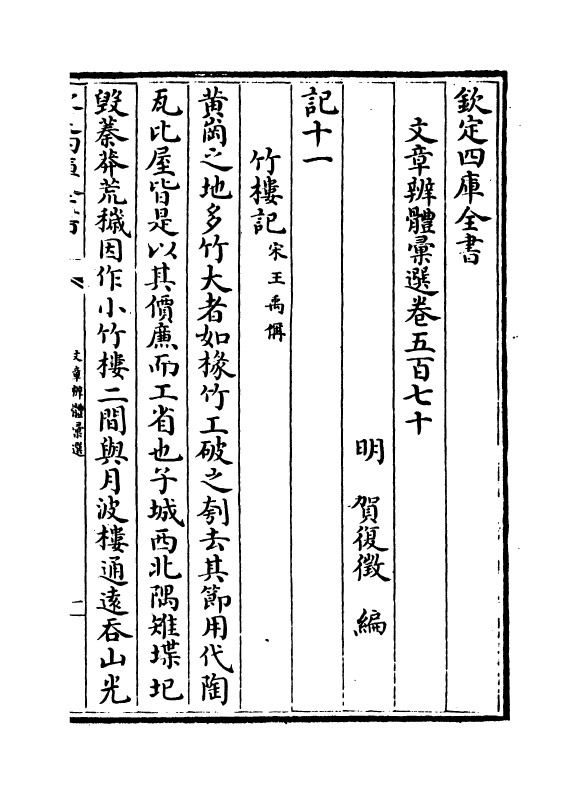 欽定四庫全書
文章辨體彚選卷五百七十
明 賀復徵 編
記十一
竹樓記宋王禹偁
黄岡之地多竹大者如椽竹工破之刳去其節用代陶
瓦比屋皆是以其價廉而工省也子城西北隅雉堞圮
毁蓁莽荒穢因作小竹樓二間與月波樓通遠吞山光
文章辨體彚選